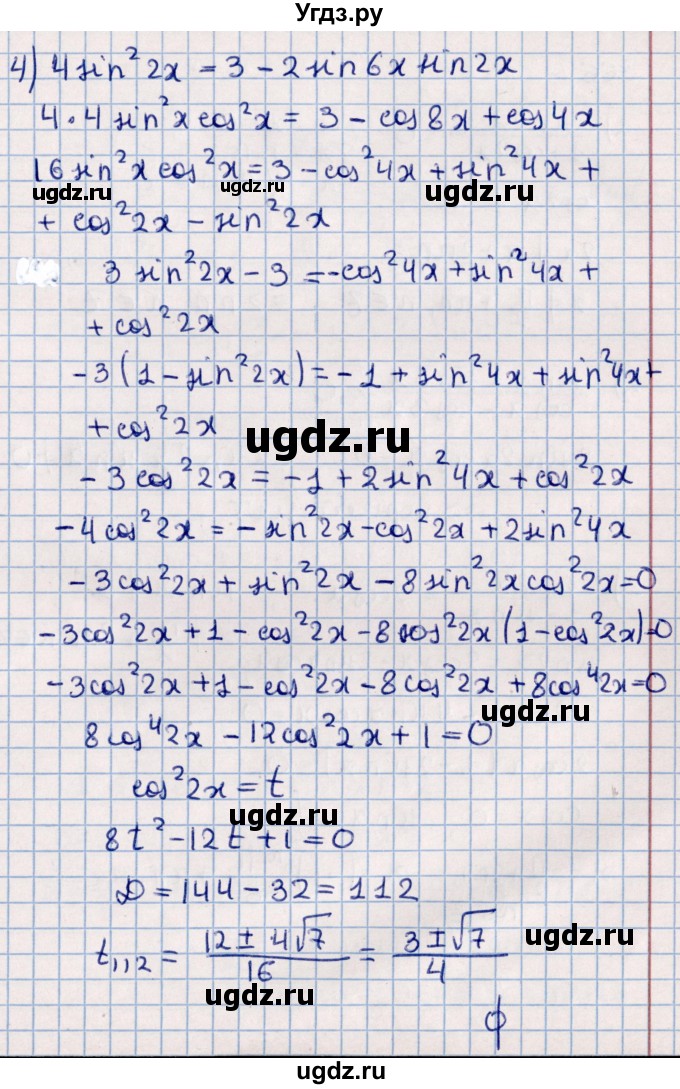 Угдз.ру
4) 4 sin² 2x = 3 - 2 sin 6x sin 2x
4 · 4 sin²x cos²x = 3 - cos 8x + cos 4x
16 sin²x cos²x = 3 - cos²4x + sin²4x +
ugdz.ru ugdz.ru ugdz.ru
+ cos²2x - sin²2x
3 sin²2x - 3 = -cos²4x + sin²4x +
+ cos²2x
-3(1 - sin²2x) = -1 + sin²4x + sin²4x +
+ cos²2x
ugdz.ru
-3cos²2x = -1 + 2sin²4x + cos²2x
-4cos²2x = -sin²2x - cos²2x + 2sin²4x
-3cos²2x + sin²2x - 8sin²2x cos²2x = 0
-3cos²2x + 1 - cos²2x - 8cos²2x(1 - cos²2x) = 0
-3cos²2x + 1 - cos²2x - 8cos²2x + 8cos⁴2x = 0
ugdz.ru
8cos⁴2x - 12cos²2x + 1 = 0
cos²2x = t
ugdz.ru
8t² - 12t + 1 = 0
D = 144 - 32 = 112
t₁,₂ = (12 ± 4√7)/16 = (3 ± √7)/4
ugdz.ru
ϕ
ugdz.ru